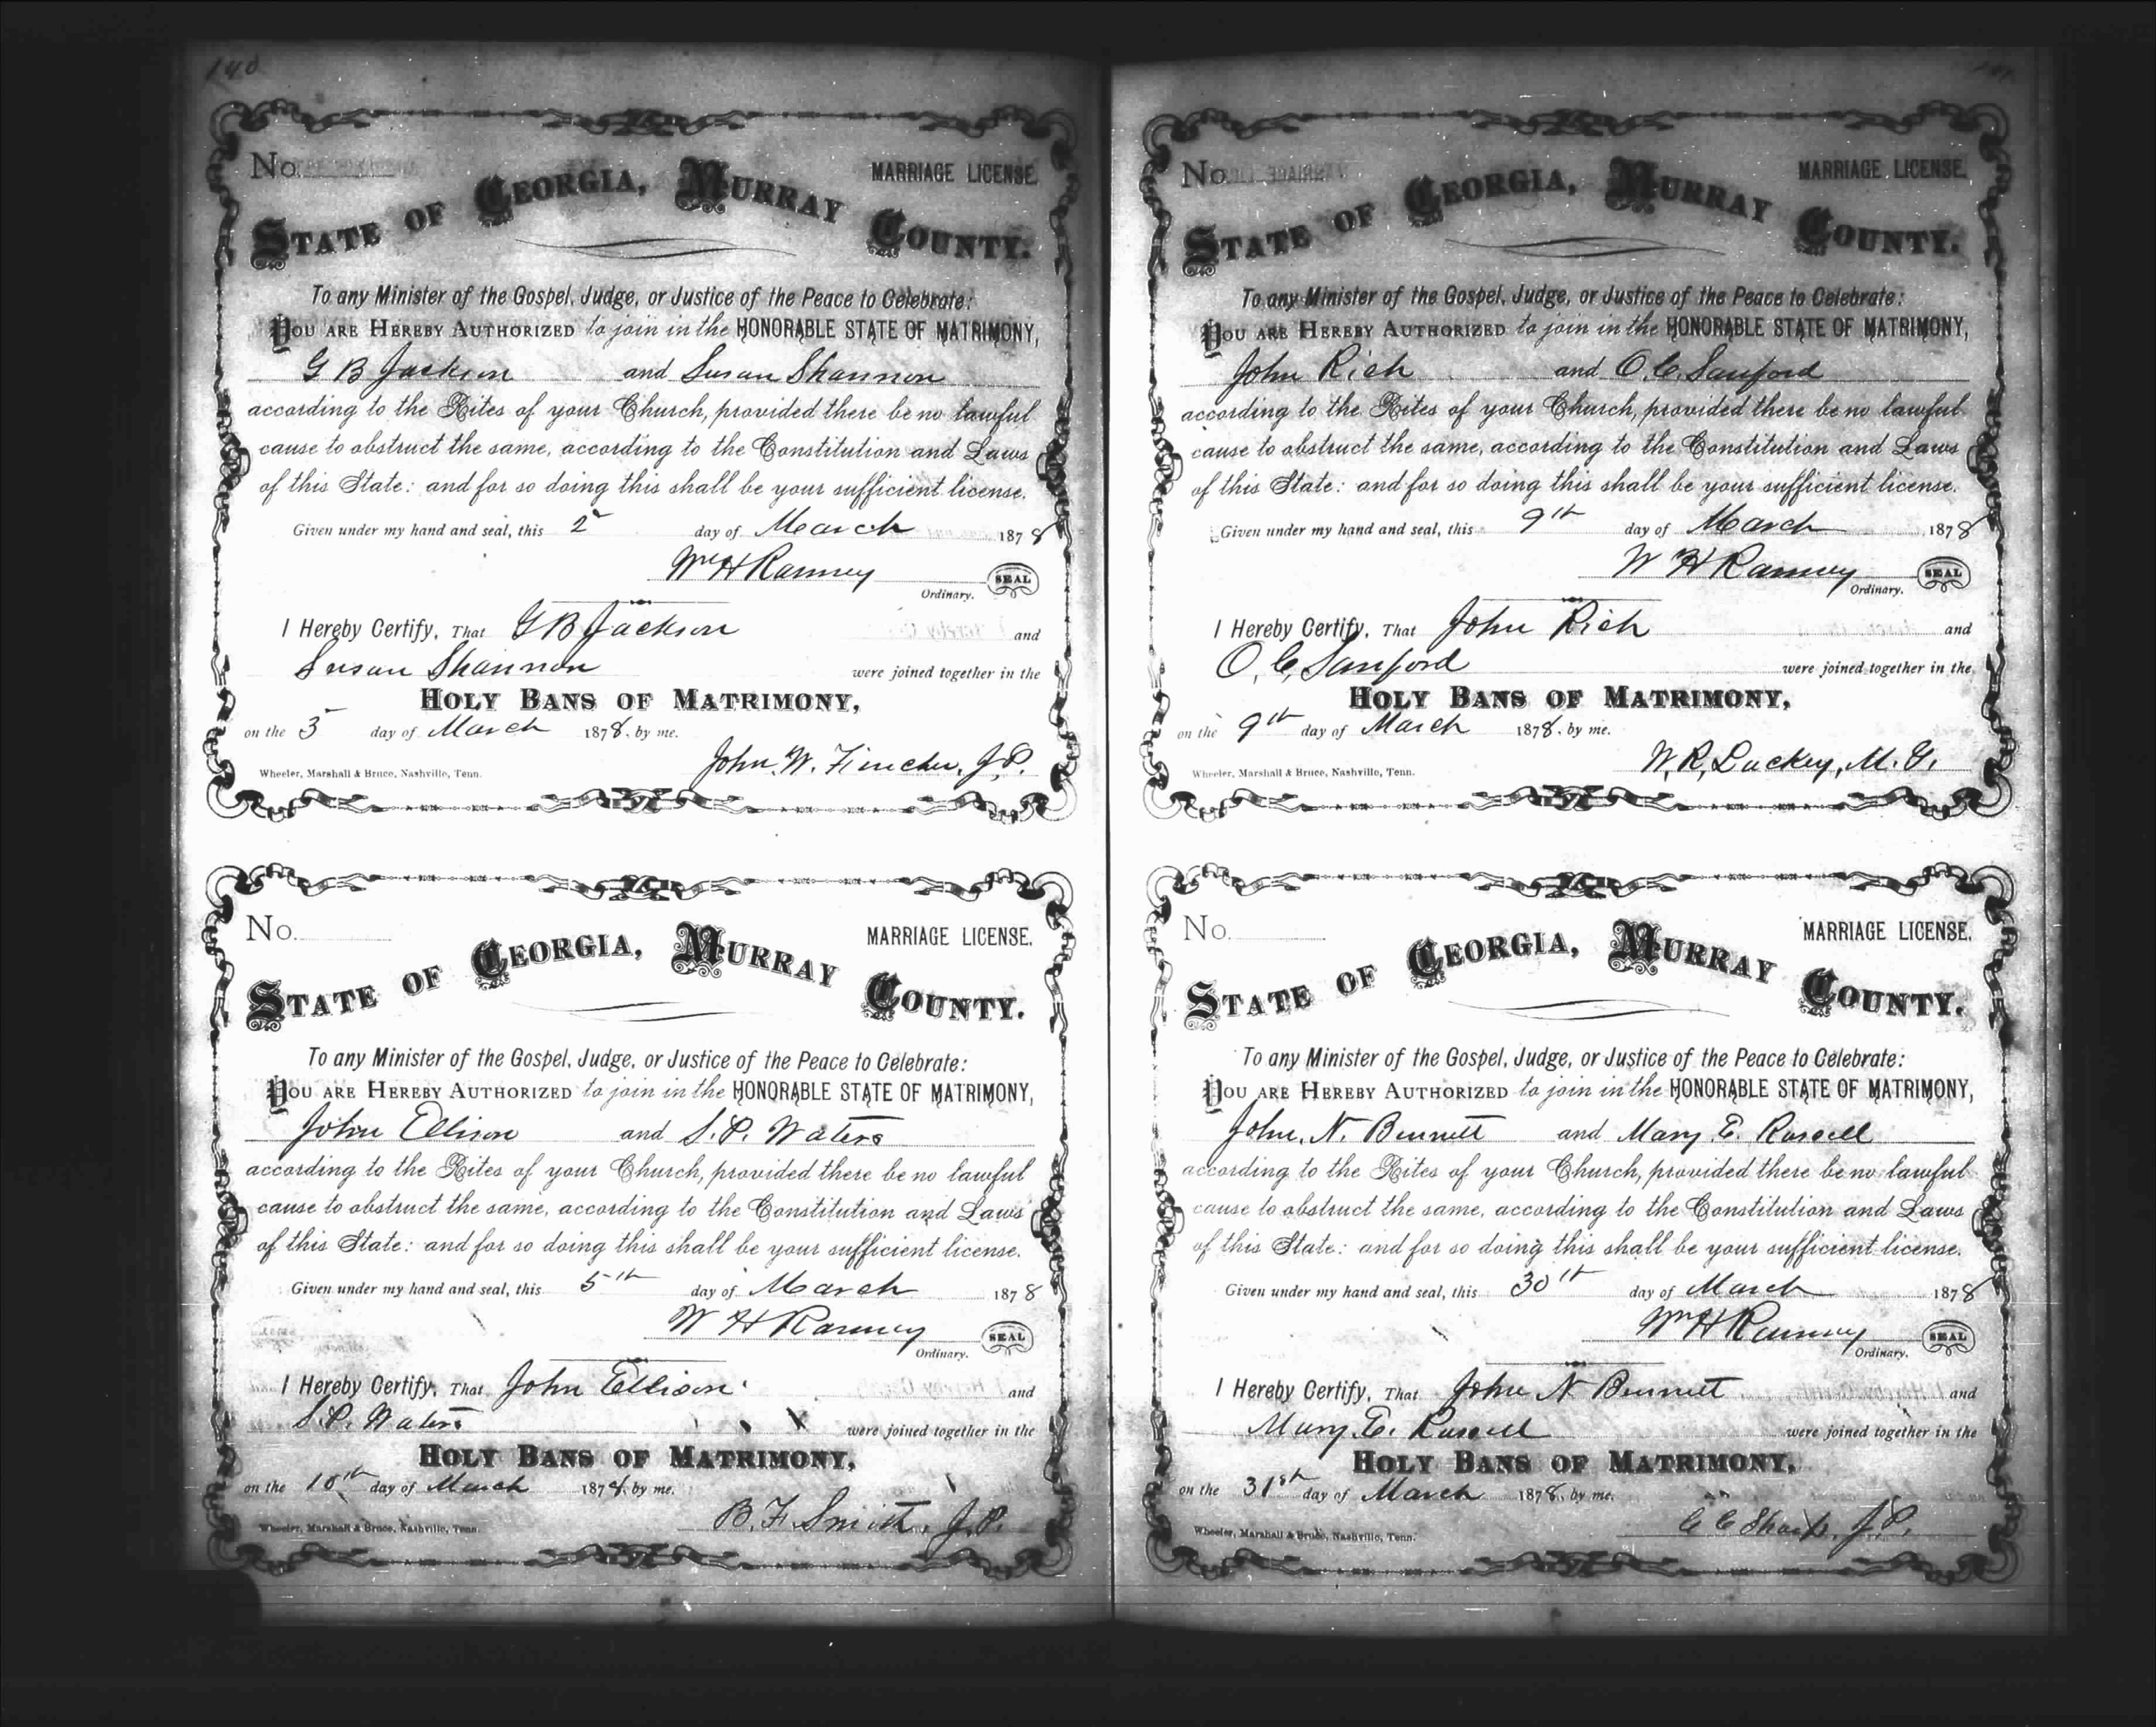 140
No.
MARRIAGE LICENSE.
STATE OF GEORGIA, MURRAY COUNTY.
To any Minister of the Gospel, Judge, or Justice of the Peace to Celebrate:
YOU ARE HEREBY AUTHORIZED to join in the HONORABLE STATE OF MATRIMONY,
G B Jackson and Susan Shannon
according to the Rites of your Church, provided there be no lawful
cause to obstruct the same, according to the Constitution and Laws
of this State: and for so doing this shall be your sufficient license.
Given under my hand and seal, this 2 day of March 1878
Wm H Ramsey SEAL
Ordinary.
I Hereby Certify, That G B Jackson and
Susan Shannon were joined together in the
HOLY BANS OF MATRIMONY,
on the 3 day of March 1878, by me.
John. W. Fincher, J.P.
Wheeler, Marshall & Bruce, Nashville, Tenn.
No.
MARRIAGE LICENSE.
STATE OF GEORGIA, MURRAY COUNTY.
To any Minister of the Gospel, Judge, or Justice of the Peace to Celebrate:
YOU ARE HEREBY AUTHORIZED to join in the HONORABLE STATE OF MATRIMONY,
John Ellison and S. P. Waters
according to the Rites of your Church, provided there be no lawful
cause to obstruct the same, according to the Constitution and Laws
of this State: and for so doing this shall be your sufficient license.
Given under my hand and seal, this 5th day of March 1878
W H Ramsey SEAL
Ordinary.
I Hereby Certify, That John Ellison and
S. P. Waters were joined together in the
HOLY BANS OF MATRIMONY,
on the 10th day of March 1878, by me.
B. F. Smith, J.P.
Wheeler, Marshall & Bruce, Nashville, Tenn.
No.
MARRIAGE LICENSE.
STATE OF GEORGIA, MURRAY COUNTY.
To any Minister of the Gospel, Judge, or Justice of the Peace to Celebrate:
YOU ARE HEREBY AUTHORIZED to join in the HONORABLE STATE OF MATRIMONY,
John Rich and O. C. Sanford
according to the Rites of your Church, provided there be no lawful
cause to obstruct the same, according to the Constitution and Laws
of this State: and for so doing this shall be your sufficient license.
Given under my hand and seal, this 9th day of March 1878
W H Ramsey SEAL
Ordinary.
I Hereby Certify, That John Rich and
O. C. Sanford were joined together in the
HOLY BANS OF MATRIMONY,
on the 9th day of March 1878, by me.
W. R. Luckey, M. G.
Wheeler, Marshall & Bruce, Nashville, Tenn.
No.
MARRIAGE LICENSE.
STATE OF GEORGIA, MURRAY COUNTY.
To any Minister of the Gospel, Judge, or Justice of the Peace to Celebrate:
YOU ARE HEREBY AUTHORIZED to join in the HONORABLE STATE OF MATRIMONY,
John. N. Bennett and Mary E. Russell
according to the Rites of your Church, provided there be no lawful
cause to obstruct the same, according to the Constitution and Laws
of this State: and for so doing this shall be your sufficient license.
Given under my hand and seal, this 30th day of March 1878
Wm H Ramsey SEAL
Ordinary.
I Hereby Certify, That John N Bennett and
Mary. E. Russell were joined together in the
HOLY BANS OF MATRIMONY,
on the 31st day of March 1878, by me.
C C Sharp, J.P.
Wheeler, Marshall & Bruce, Nashville, Tenn.